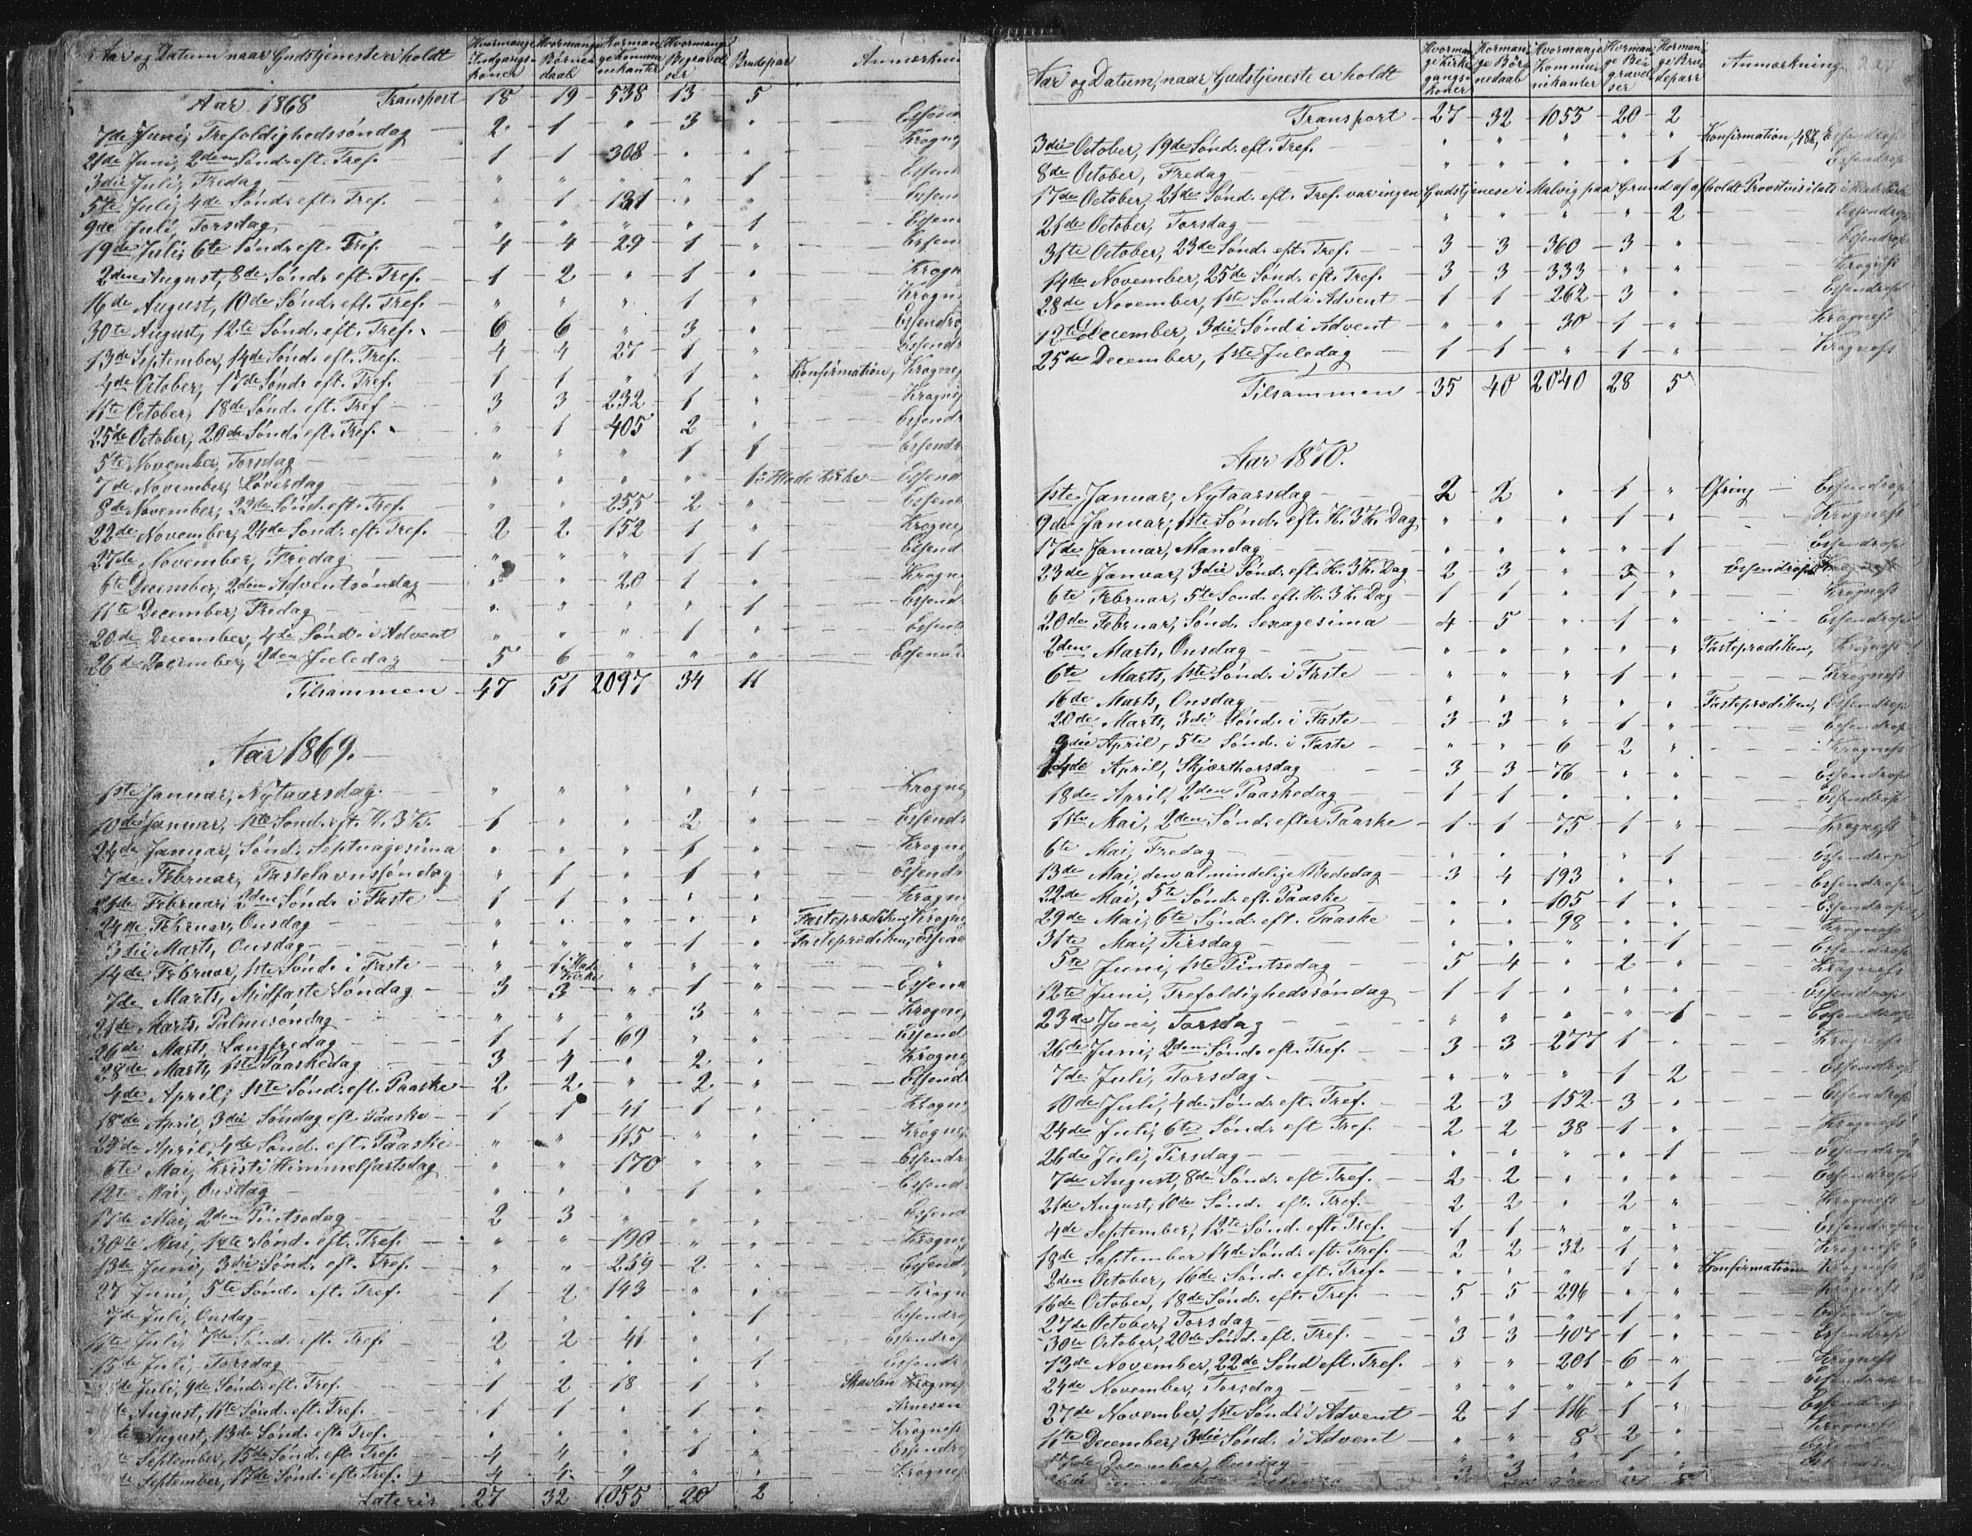 Aar og Datum naar Gudstjeneste er holdt | Hvormange Indgangskoner | Hvormange Børnedaab | Hvormange Kommunikanter | Hvormange Begravelser | Brudepar | Anmærkning
Aar 1868 Transport 18 19 538 13 5
7de Juni, Trefoldighedssøndag 2 1 " 3 "
21de Juni, 2den Sønd. eft. Tref. 1 1 308 " " Krogne
3die Juli, Fredag " " " " 1
5te Juli, 4de Sønd. eft. Tref. " 1 131 " "
9de Juli, Torsdag " " " " 1
19de Juli, 6te Sønd. eft. Tref. 4 4 29 1 "
2den August, 8de Sønd. eft. Tref. 1 2 " 1 " Krogne
16de August, 10de Sønd. eft. Tref. " " " 1 " Krogne
30te August, 12te Sønd. eft. Tref. 6 6 " 3 " Essendro
13de September, 14de Sønd. eft. Tref. 4 4 27 1 "
4de October, 17de Sønd. eft. Tref. 1 1 " 1 " Konfirmation, Krogne
11te October, 18de Sønd. eft. Tref. 3 3 232 1 " Krogne
25de October, 20de Sønd. eft. Tref. " 1 405 2 " Essendr
5te November, Torsdag " " " 1 1 Essendr
7de November, Løverdag " " " " 1 i Hade Kirke Essend
8de November, 22de Sønd. eft. Tref. " " 255 2 "
22de November, 24de Sønd. eft. Tref. 2 2 152 1 " Krogne
27de November, Fredag " " " 1 1 Essend
6te December, 2den Adventsøndag " " 20 1 " Krogne
11te December, Fredag " " " " 1 Essend
20de December, 4de Sønd. i Advent " " " 1 "
26de December, 2den Juledag 5 6 " " "
Tilsammen 47 51 2097 34 11
Aar 1869.
1ste Januar, Nytaarsdag. " " " " " Krogne
10de Januar, 1ste Sønd. eft. H. 3 K. 1 " " 2 " Essendr
24de Januar, Sønd. Septuagesima " " " 1 " Krogne
7de Februar, Fastelavnssøndag " 1 " 1 " Essendr
21de Februar, 2den Sønd. i Faste 1 1 " " " Krogne
24de Februar, Onsdag " " " " " Fasteprædiken, Krogne
3die Marts, Onsdag " " " 1 " Fasteprædiken, Essend
14de Februar, 1ste Sønd. i Faste " 1 i Hade Kirke " " "
7de Marts, Midfaste Søndag 3 3 " 1 " Essend
21de Marts, Palmesøndag " " " 3 " Krogne
26de Marts, Langfredag 1 1 69 " " Essend
28de Marts, 1ste Paaskedag 3 4 " 2 " Krogne
4de April, 1ste Sønd. eft. Paaske 2 2 " 2 " Essend
18de April, 3die Søndag eft. Paaske 1 1 41 1 " Krogne
25de April, 4de Sønd. eft. Paaske " " 115 " " Krogne
6te Mai, Kristi Himmelfartsdag " " 170 " " Essendr
12te Mai, Onsdag " " " 1 " Essend
17de Mai, 2den Pintsedag 2 3 " " " Essend
30te Mai, 1ste Sønd. eft. Tref. " " 190 " " Krogne
13de Juni, 3die Sønd. eft. Tref. " " 259 2 " Essend
27 Juni, 5te Sønd. eft. Tref. 1 2 143 " " Krogn
7de Juli, Onsdag " " " " 1 Essendr
11te Juli, 7de Sønd. eft. Tref. 2 2 41 " " Essendro
15de Juli, Torsdag " " " " 1 Essendr
de Juli, 9de Sønd. eft. Tref. 1 2 18 1 " Skavlan Krogne
te August, 11te Sønd. eft. Tref. 1 1 " 1 " Arnesen
te August, 13de Sønd. eft. Tref. " " " " " Krogness
te September, 15de Sønd. eft. Tref. 4 4 " 1 " Essendr
te September, 17de Sønd. eft. Tref. 4 4 9 " " Krogne
Lateris 27 32 1055 20 2
Aar og Datum, naar Gudstjeneste er holdt | Hvormange Kirkegangskoner | Hvormange Børnedaab | Hvormange Kommunikanter | Hvormange Begravelser | Hvormange Brudeparr | Anmærkning
Transport 27 32 1055 20 2
3die October, 19de Sønd. eft. Tref. " " " " " Konfirmation, Essendrop
8de October, Fredag " " " " 1 Essendrop
17de October, 21de Sønd. eft. Tref. var ingen Gudstjeneste i Malvig paa Grund af afholdt Provstvisitats i Hade Kirke
21de October, Torsdag " " " " 2 Essendrop
31te October, 23de Sønd. eft. Tref. 3 3 360 3 " Essendrop
14de November, 25de Sønd. eft. Tref. 3 3 333 " " Krogness
28de November, 1ste Sønd. i Advent 1 1 262 3 " Essendrop
12te December, 3die Sønd. i Advent " " 30 1 " Krogness
25de December, 1ste Juledag 1 1 " 1 " Krogness
Tilsammen 35 40 2040 28 5
Aar 1870.
1ste Januar, Nytaarsdag 2 2 " 1 " Ofring Essendrop
9de Januar, 1ste Sønd. eft. H. 3 K. Dag " " " 1 " Krogness
17de Januar, Mandag " " " " 1 Essendrop
23de Januar, 3die Sønd. eft. H. 3 K. Dag 2 3 " 3 " Essendrop
6te Februar, 5te Sønd. eft. H. 3 K. Dag 1 1 " 1 " Krogness
20de Februar, Sønd. Sexagesima 4 5 " 1 " Essendrop
2den Marts, Onsdag " " " " " Fasteprædiken, Krogness
6te Marts, 1ste Sønd. i Faste " " " 1 " Krogness
16de Marts, Onsdag " " " " " Fasteprædiken, Essendrop
20de Marts, 3die Sønd. i Faste 3 3 " 1 " Essendrop
3die April, 5te Sønd. i Faste " " 6 2 " Krogness
14de April, Skjærthorsdag 3 3 76 " " Essendrop
18de April, 2den Paaskedag 1 1 " " " Essendrop
1ste Mai, 2den Sønd. efter Paaske 1 1 75 1 " Krogness
6te Mai, Fredag " " " " 1 Essendrop
13de Mai, den almindelige Bededag 3 4 193 " " Essendrop
22de Mai, 5te Sønd. eft. Paaske " " 105 1 " Essendrop
29de Mai, 6te Sønd. eft. Paaske " " 98 " " Krogness
31te Mai, Tirsdag " " " " 1 Essendrop
5te Juni, 1ste Pintsedag 5 4 " 2 " Krogness
12te Juni, Trefoldighedssøndag 1 1 " " " Essendrop
23de Juni, Torsdag " " " " 1 Essendrop
26de Juni, 2den Sønd. eft. Tref. 3 3 277 1 " Krogness
7de Juli, Torsdag " " " 1 2 Essendrop
10de Juli, 4de Sønd. eft. Tref. 2 3 152 3 " Essendrop
24de Juli, 6te Sønd. eft. Tref. 2 2 38 1 " Krogness
26de Juli, Tirsdag " " " " 1 Essendrop
7de August, 8de Sønd. eft. Tref. 2 2 " " " Essendrop
21de August, 10de Sønd. eft. Tref. 2 2 " 2 " Krogness
4de September, 12te Sønd. eft. Tref. 1 1 " " " Essendrop
18de September, 14de Sønd. eft. Tref. 2 2 32 1 " Krogness
2den October, 16de Sønd. eft. Tref. " " " 1 " Konfirmation Krogness
16de October, 18de Sønd. eft. Tref. 5 5 296 " " Krogness
27de October, Torsdag " " " 1 "
30te October, 20de Sønd. eft. Tref. 3 3 407 1 " Essendrop
13de November, 22de Sønd. eft. Tref. " " 201 6 " Krogness
24de November, Torsdag " " " " 1 Essendrop
27de November, 1ste Sønd. i Advent 2 1 116 1 " Essendrop
11te December, 3die Sønd. i Advent " " 8 2 " Krogness
December, Onsdag " " " 1 "
3 3